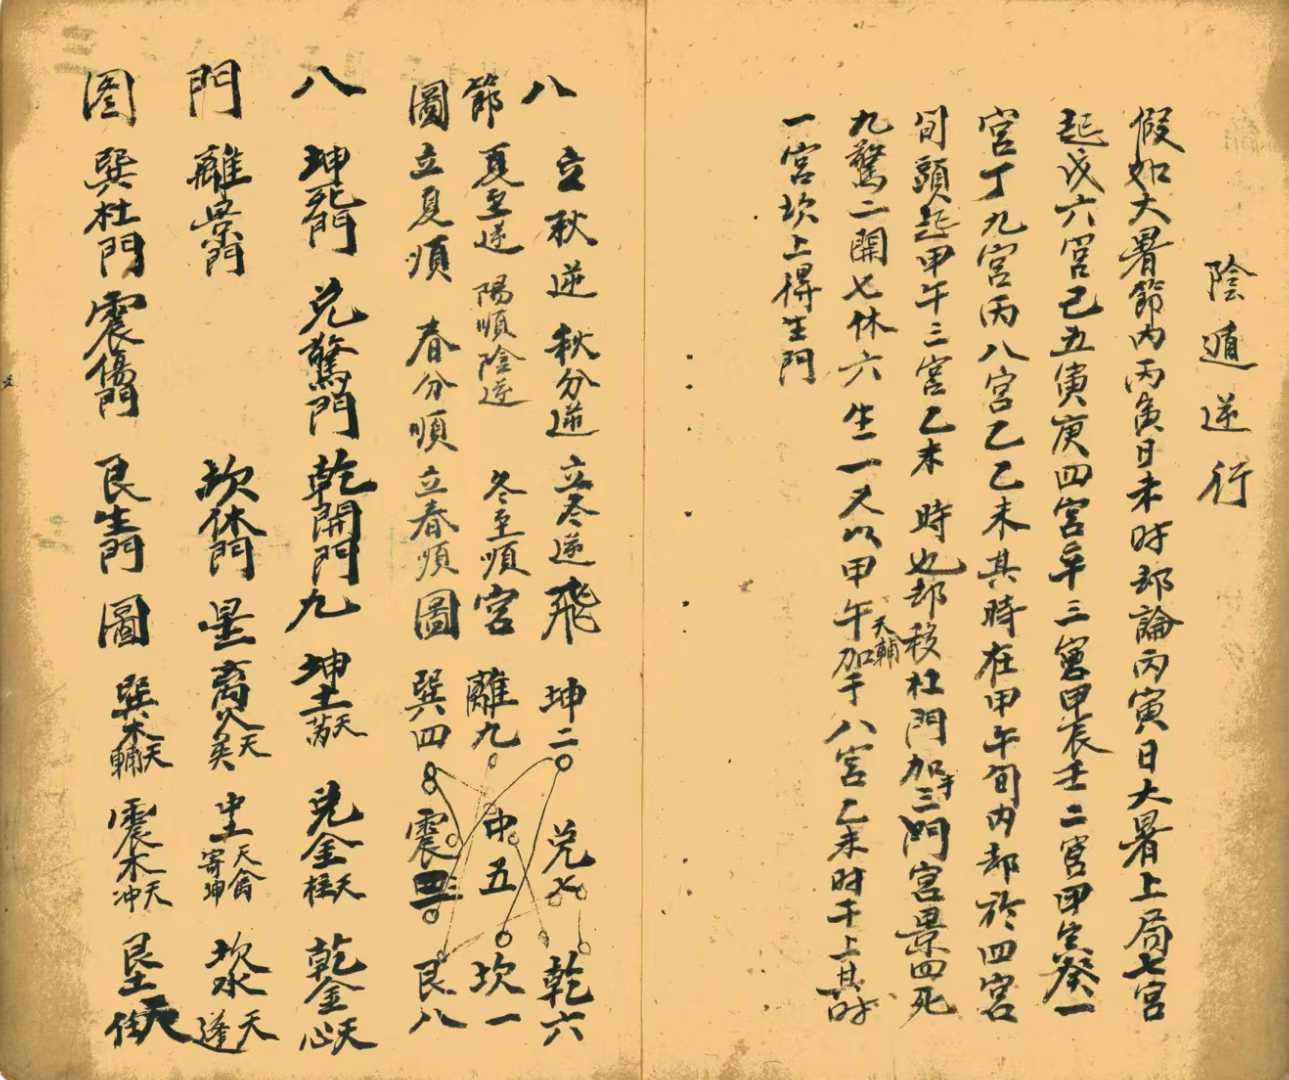 陰遁逆行
假如大暑節內丙寅日未時却論丙寅日大暑上局七宮
起戊六宮己五寅庚四宮辛三宮甲辰壬二宮甲寅癸一
宮丁九宮丙八宮乙乙未其時在甲午旬內却於四宮
旬頭起甲午三宮乙未時也却移杜門加三門宮景四死
九驚二開七休六生一又以甲午天輔加于八宮乙未時干上其時
一宮坎上得生門
八立秋逆秋分逆立冬逆飛坤二兌七乾六
節夏至逆陽順陰逆冬至順宮離九中五坎一
圖立夏順春分順立春順圖巽四震三艮八
八坤死門兌驚門乾開門九坤土天芮兌金天柱乾金天心
門離景門坎休門星离火天英中土天禽寄坤坎水天逢
图巽杜門震傷門艮生門圖巽木天輔震木天冲艮土天任